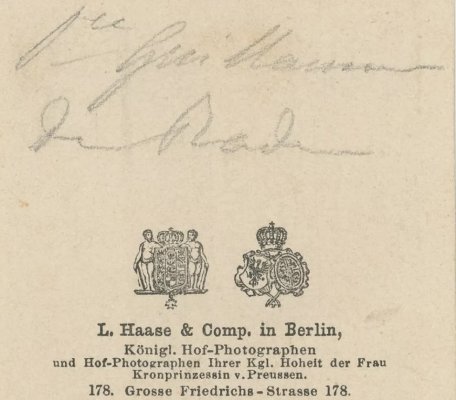 Pce Guillaume
de Bade
L. Haase & Comp. in Berlin,
Königl. Hof-Photographen
und Hof-Photographen Ihrer Kgl. Hoheit der Frau
Kronprinzessin v. Preussen.
178. Grosse Friedrichs-Strasse 178.